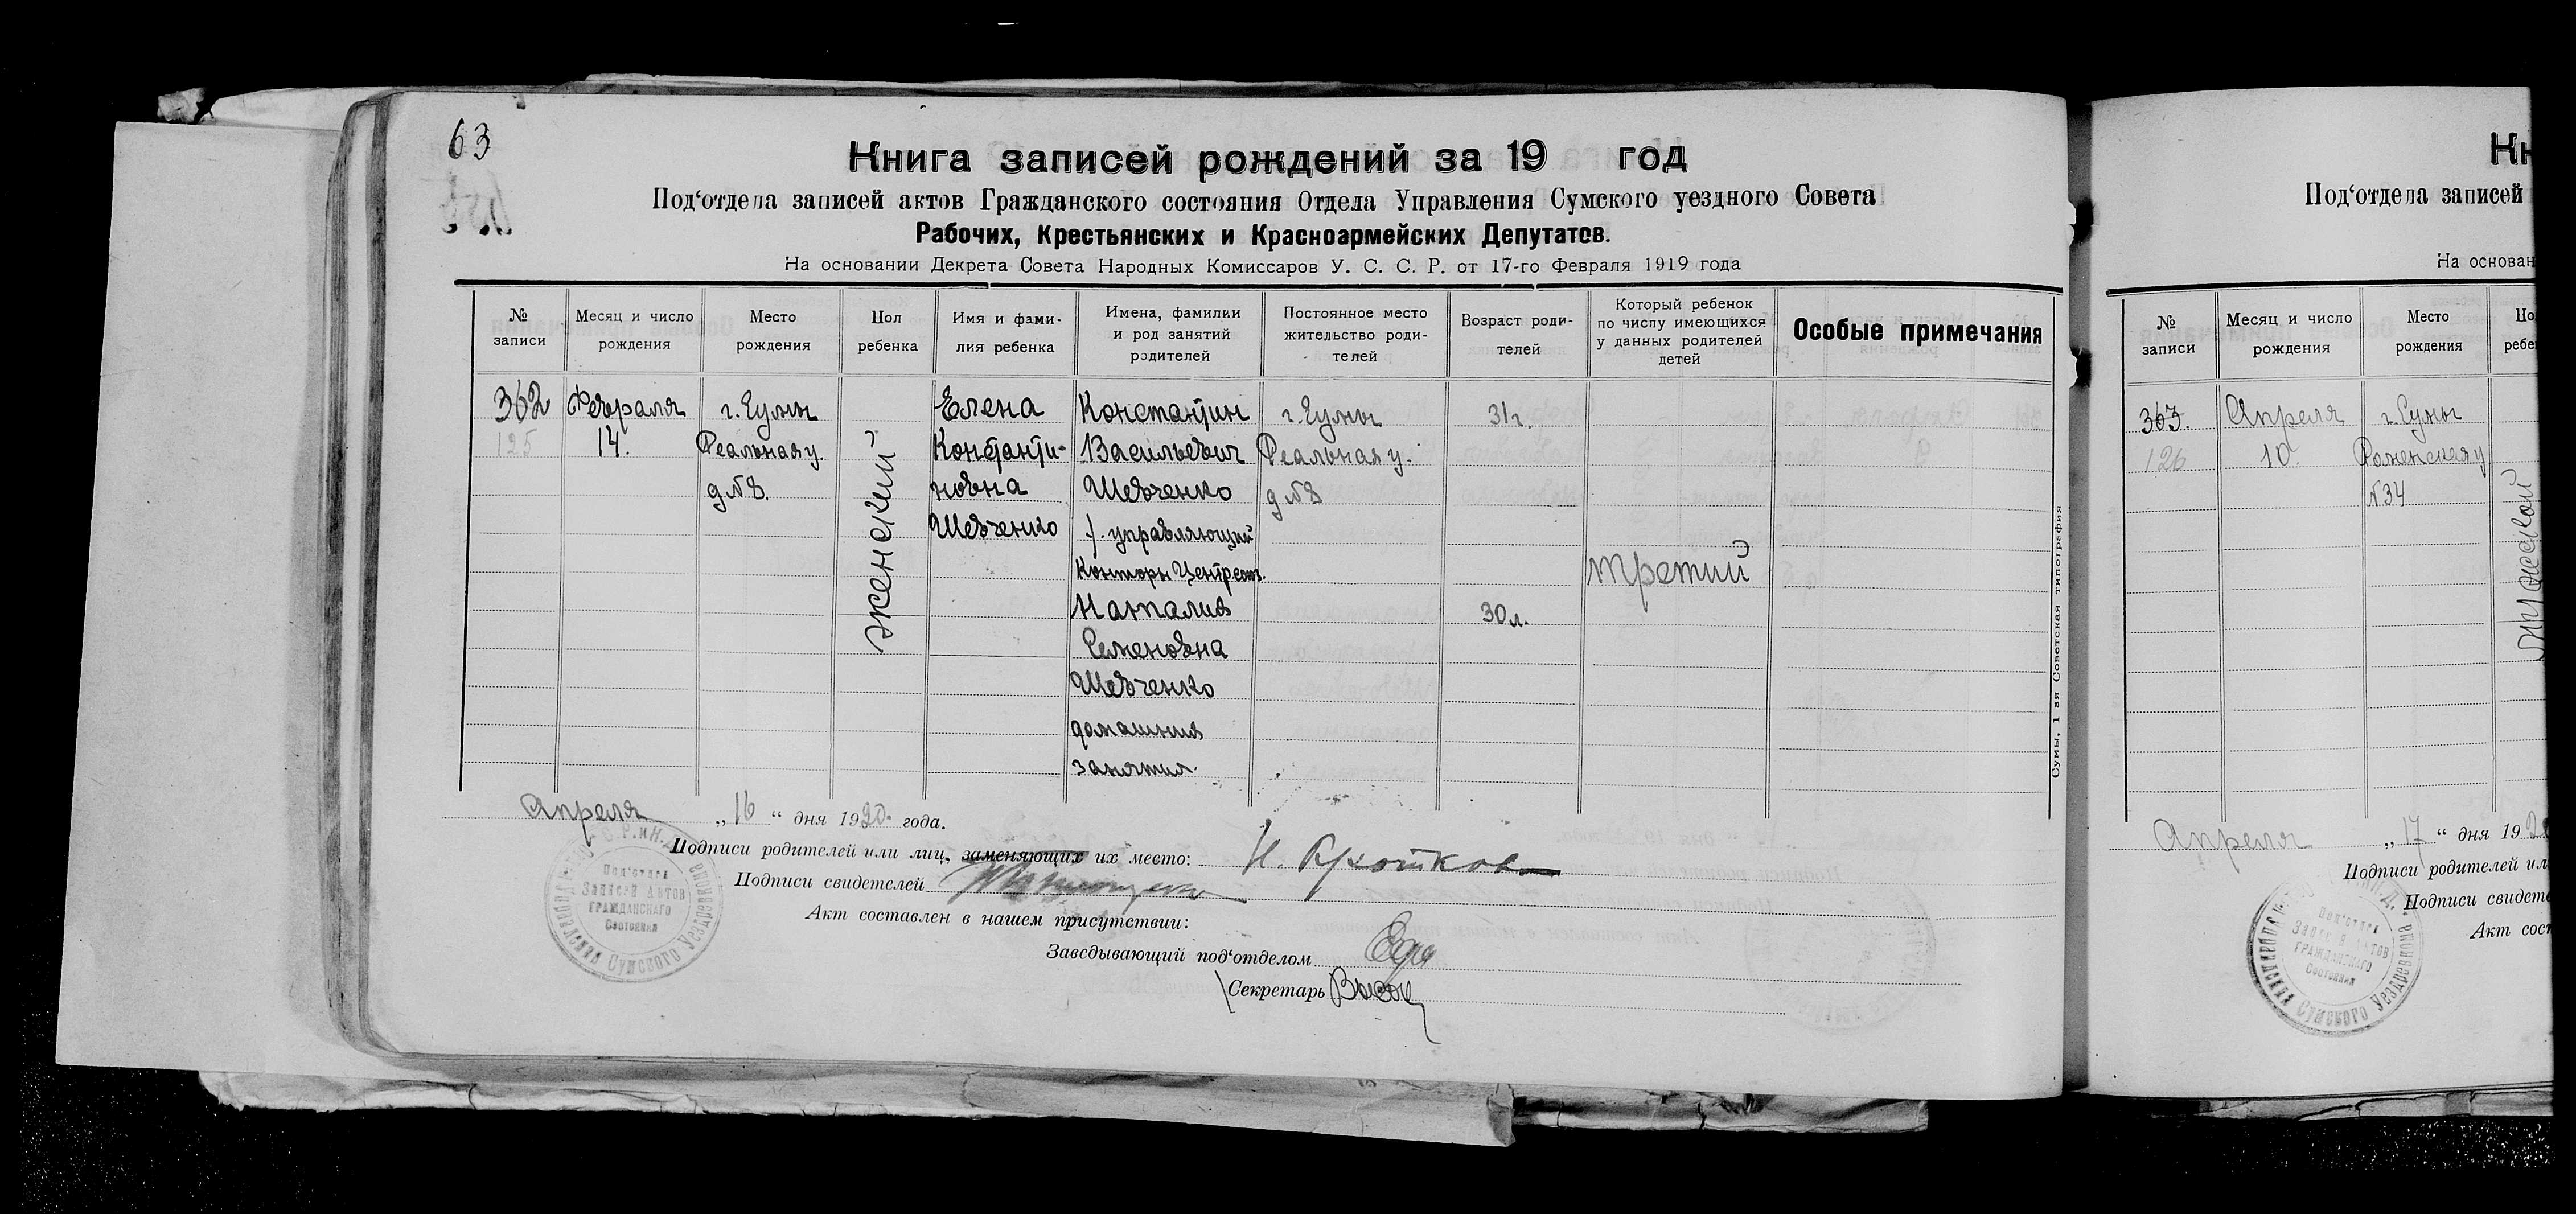 63
Книга записей рождений за 19 год
Под‘отдела записей актов Гражданского состояния Отдела Управления Сумского уездного Совета
Рабочих, Крестьянских и Красноармейских Депутатов.
На основании Декрета Совета Народных Комиссаров У. С. С. Р. от 17-го Февраля 1919 года
№ записи
Месяц и число рождения
Место рождения
Пол ребенка
Имя и фами-
лия ребенка
Имена, фамилии
и род занятий
родителей
Постоянное место
жительство роди-
телей
Возраст роди-
телей
Который ребенок
по числу имеющихся
у данных родителей
детей
Особые примечания
362
125
Февраля
14.
г. Сумы
Реальная у.
д № 8.
женский
Елена
Константи-
новна
Шевченко
Константин
Васильевич
Шевченко
управляющий
Конторы Центросоюз.
Наталия
Семеновна
Шевченко
домашния
занятия.
г. Сумы
Реальная у.
д № 8
31 г.
30 л.
третий
Апреля „16“ дня 1920. года.
Подписи родителей или лиц, заменяющих их место: Н. Кротков
Подписи свидетелей
Акт составлен в нашем присутствии:
Заведывающий под‘отделом
Секретарь
Под‘отдела
Записей Актов
Гражданскаго
Состояния
Сумы, 1 ая Советская типография
Кн
Под‘отдела записей
На основан
№ записи
Месяц и число рождения
Место рождения
По
ребе
363.
126
Апреля
10.
г. Сумы
Роменская у
№ 34
мужской
Апреля „17“ дня 192
Подписи родителей ил
Подписи свидете
Акт сост
Под‘отдела
Записей Актов
Гражданскаго
Состояния